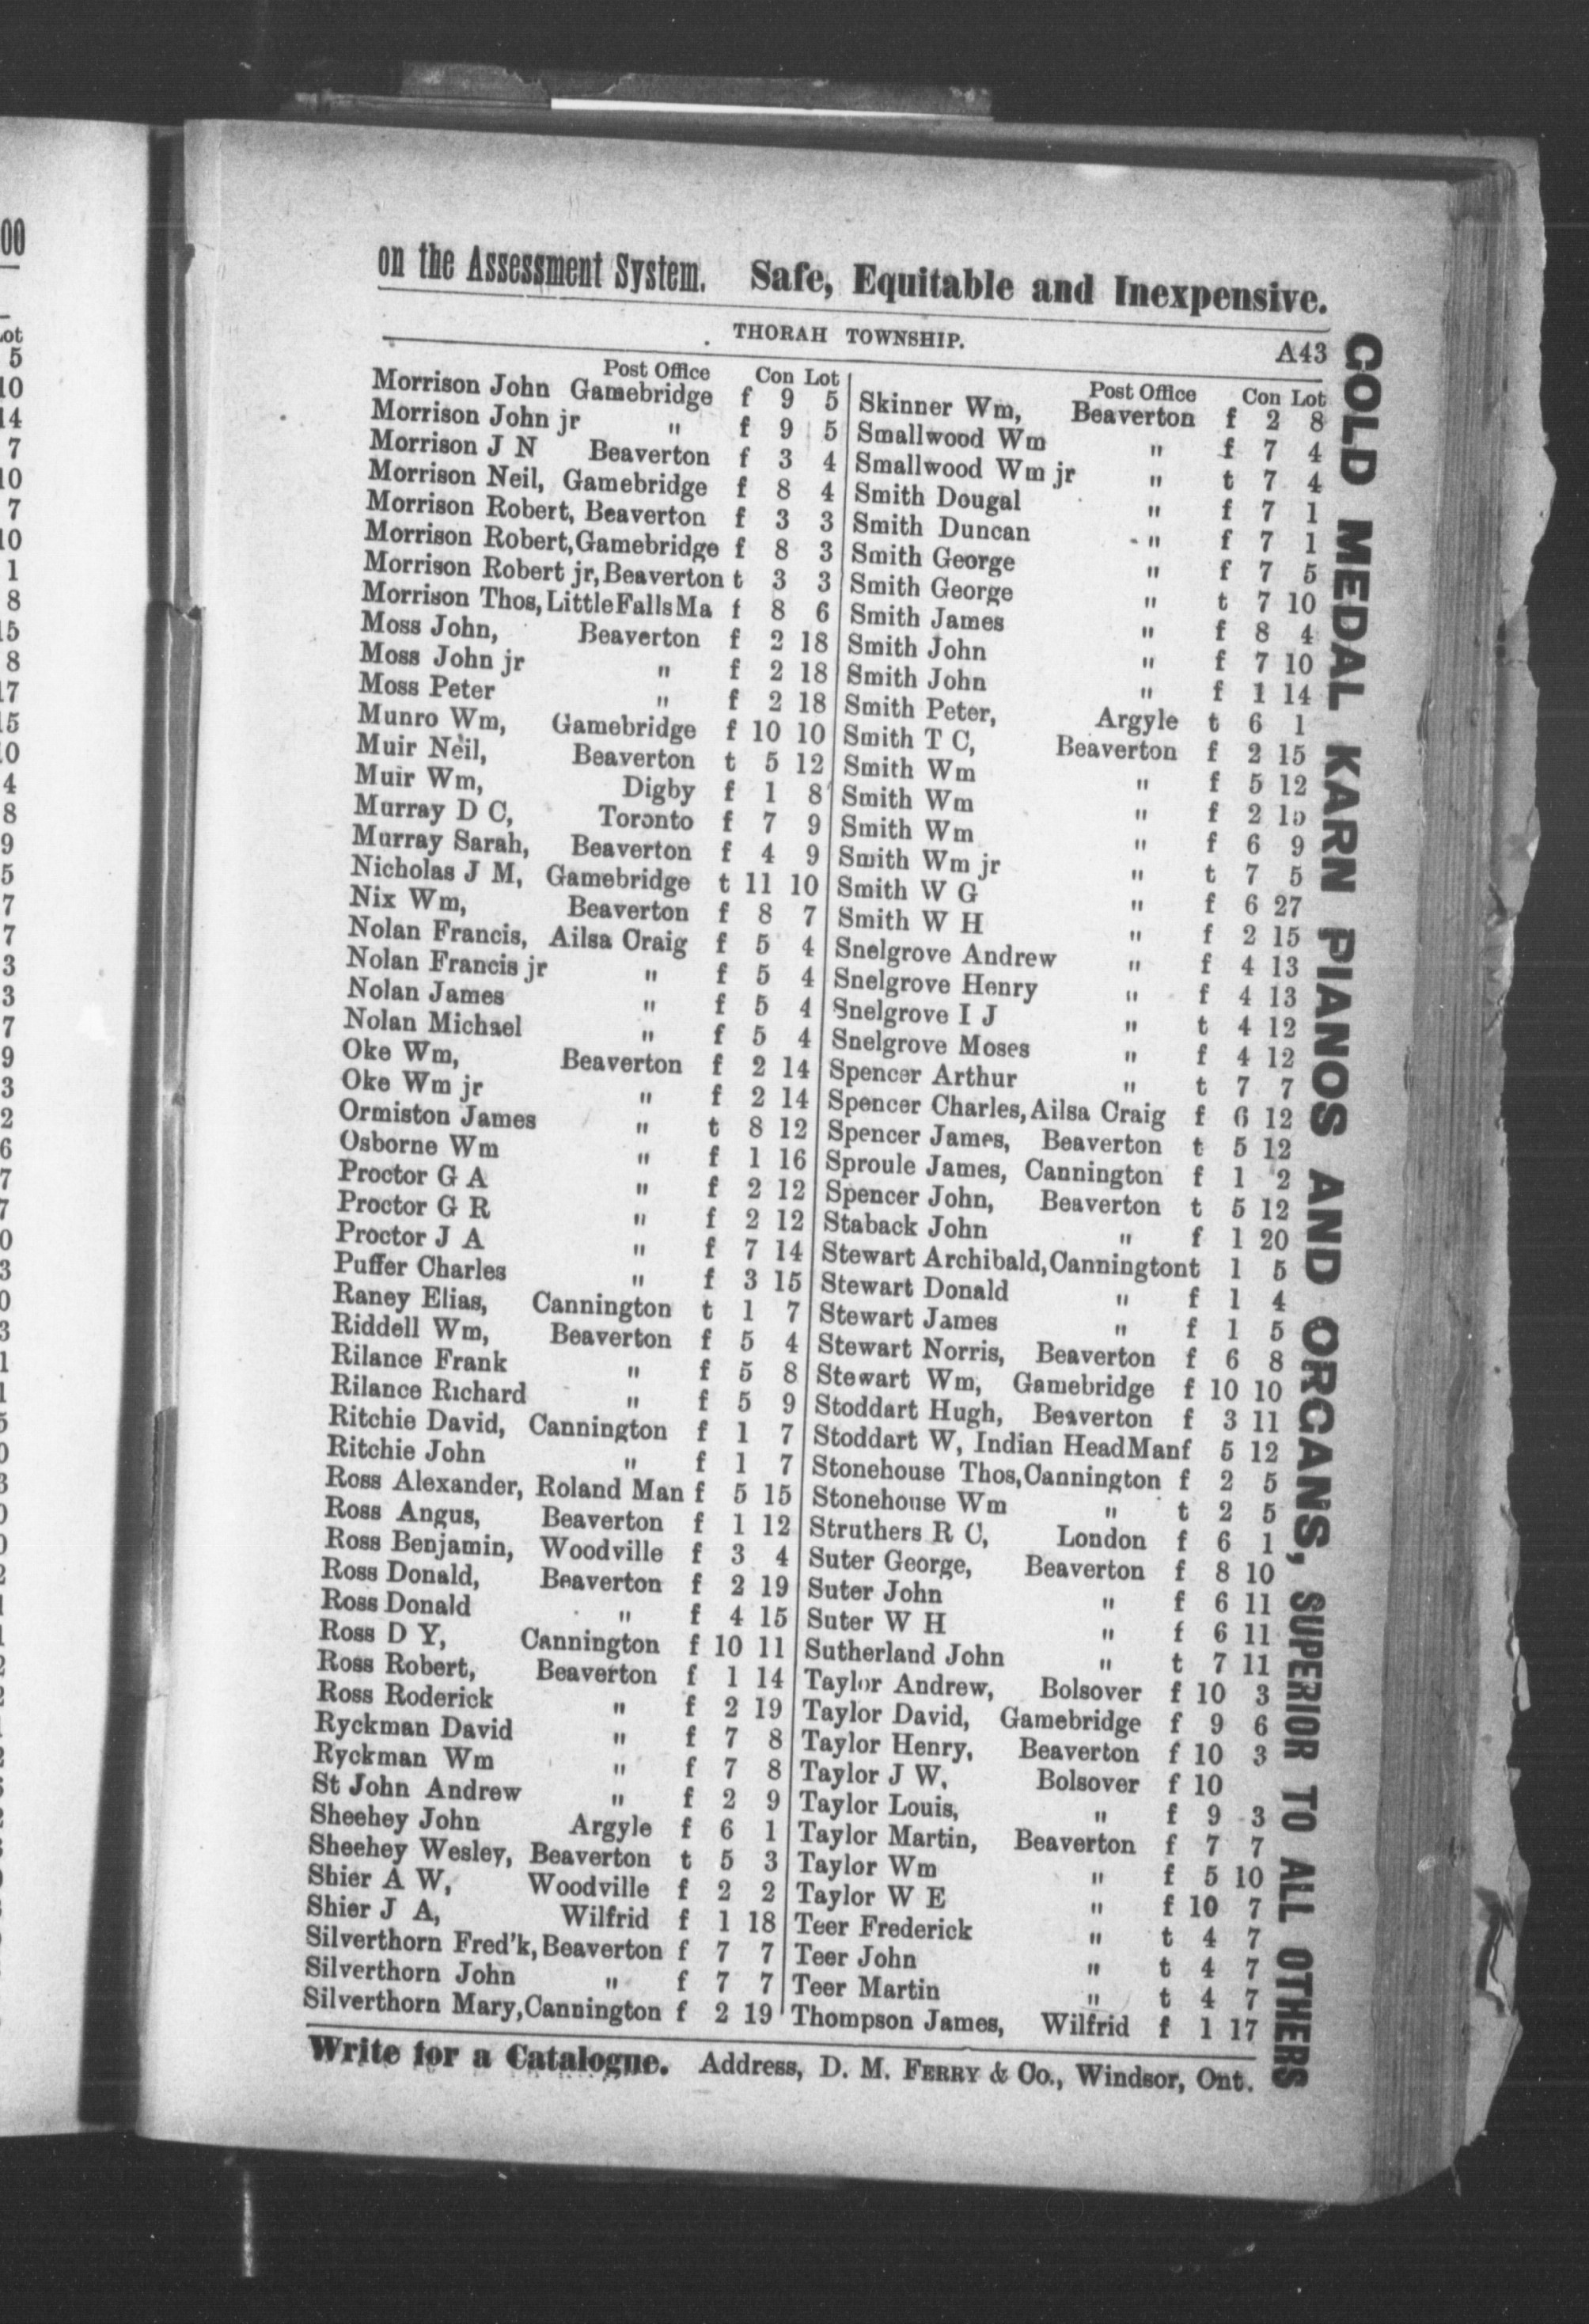 on the Assessment System. Safe, Equitable and Inexpensive.
THORAH TOWNSHIP. A43
Post Office Con Lot
Morrison John Gamebridge f 9 5
Morrison John jr " f 9 5
Morrison J N Beaverton f 3 4
Morrison Neil, Gamebridge f 8 4
Morrison Robert, Beaverton f 3 3
Morrison Robert, Gamebridge f 8 3
Morrison Robert jr, Beaverton t 3 3
Morrison Thos, Little Falls Ma f 8 6
Moss John, Beaverton f 2 18
Moss John jr " f 2 18
Moss Peter " f 2 18
Munro Wm, Gamebridge f 10 10
Muir Neil, Beaverton t 5 12
Muir Wm, Digby f 1 8
Murray D C, Toronto f 7 9
Murray Sarah, Beaverton f 4 9
Nicholas J M, Gamebridge t 11 10
Nix Wm, Beaverton f 8 7
Nolan Francis, Ailsa Craig f 5 4
Nolan Francis jr " f 5 4
Nolan James " f 5 4
Nolan Michael " f 5 4
Oke Wm, Beaverton f 2 14
Oke Wm jr " f 2 14
Ormiston James " t 8 12
Osborne Wm " f 1 16
Proctor G A " f 2 12
Proctor G R " f 2 12
Proctor J A " f 7 14
Puffer Charles " f 3 15
Raney Elias, Cannington t 1 7
Riddell Wm, Beaverton f 5 4
Rilance Frank " f 5 8
Rilance Richard " f 5 9
Ritchie David, Cannington f 1 7
Ritchie John " f 1 7
Ross Alexander, Roland Man f 5 15
Ross Angus, Beaverton f 1 12
Ross Benjamin, Woodville f 3 4
Ross Donald, Beaverton f 2 19
Ross Donald " f 4 15
Ross D Y, Cannington f 10 11
Ross Robert, Beaverton f 1 14
Ross Roderick " f 2 19
Ryckman David " f 7 8
Ryckman Wm " f 7 8
St John Andrew " f 2 9
Sheehey John Argyle f 6 1
Sheehey Wesley, Beaverton t 5 3
Shier A W, Woodville f 2 2
Shier J A, Wilfrid f 1 18
Silverthorn Fred'k, Beaverton f 7 7
Silverthorn John " f 7 7
Silverthorn Mary, Cannington f 2 19
Post Office Con Lot
Skinner Wm, Beaverton f 2 8
Smallwood Wm " f 7 4
Smallwood Wm jr " t 7 4
Smith Dougal " f 7 1
Smith Duncan " f 7 1
Smith George " f 7 5
Smith George " t 7 10
Smith James " f 8 4
Smith John " f 7 10
Smith John " f 1 14
Smith Peter, Argyle t 6 1
Smith T C, Beaverton f 2 15
Smith Wm " f 5 12
Smith Wm " f 2 15
Smith Wm " f 6 9
Smith Wm jr " t 7 5
Smith W G " f 6 27
Smith W H " f 2 15
Snelgrove Andrew " f 4 13
Snelgrove Henry " f 4 13
Snelgrove I J " t 4 12
Snelgrove Moses " f 4 12
Spencer Arthur " t 7 7
Spencer Charles, Ailsa Craig f 6 12
Spencer James, Beaverton t 5 12
Sproule James, Cannington f 1 2
Spencer John, Beaverton t 5 12
Staback John " f 1 20
Stewart Archibald, Cannington t 1 5
Stewart Donald " f 1 4
Stewart James " f 1 5
Stewart Norris, Beaverton f 6 8
Stewart Wm, Gamebridge f 10 10
Stoddart Hugh, Beaverton f 3 11
Stoddart W, Indian Head Man f 5 12
Stonehouse Thos, Cannington f 2 5
Stonehouse Wm " t 2 5
Struthers R C, London f 6 1
Suter George, Beaverton f 8 10
Suter John " f 6 11
Suter W H " f 6 11
Sutherland John " t 7 11
Taylor Andrew, Bolsover f 10 3
Taylor David, Gamebridge f 9 6
Taylor Henry, Beaverton f 10 3
Taylor J W, Bolsover f 10
Taylor Louis, " f 9 3
Taylor Martin, Beaverton f 7 7
Taylor Wm " f 5 10
Taylor W E " f 10 7
Teer Frederick " t 4 7
Teer John " t 4 7
Teer Martin " t 4 7
Thompson James, Wilfrid f 1 17
Write for a Catalogue. Address, D. M. FERRY & Co., Windsor, Ont.
GOLD MEDAL KARN PIANOS AND ORGANS, SUPERIOR TO ALL OTHERS